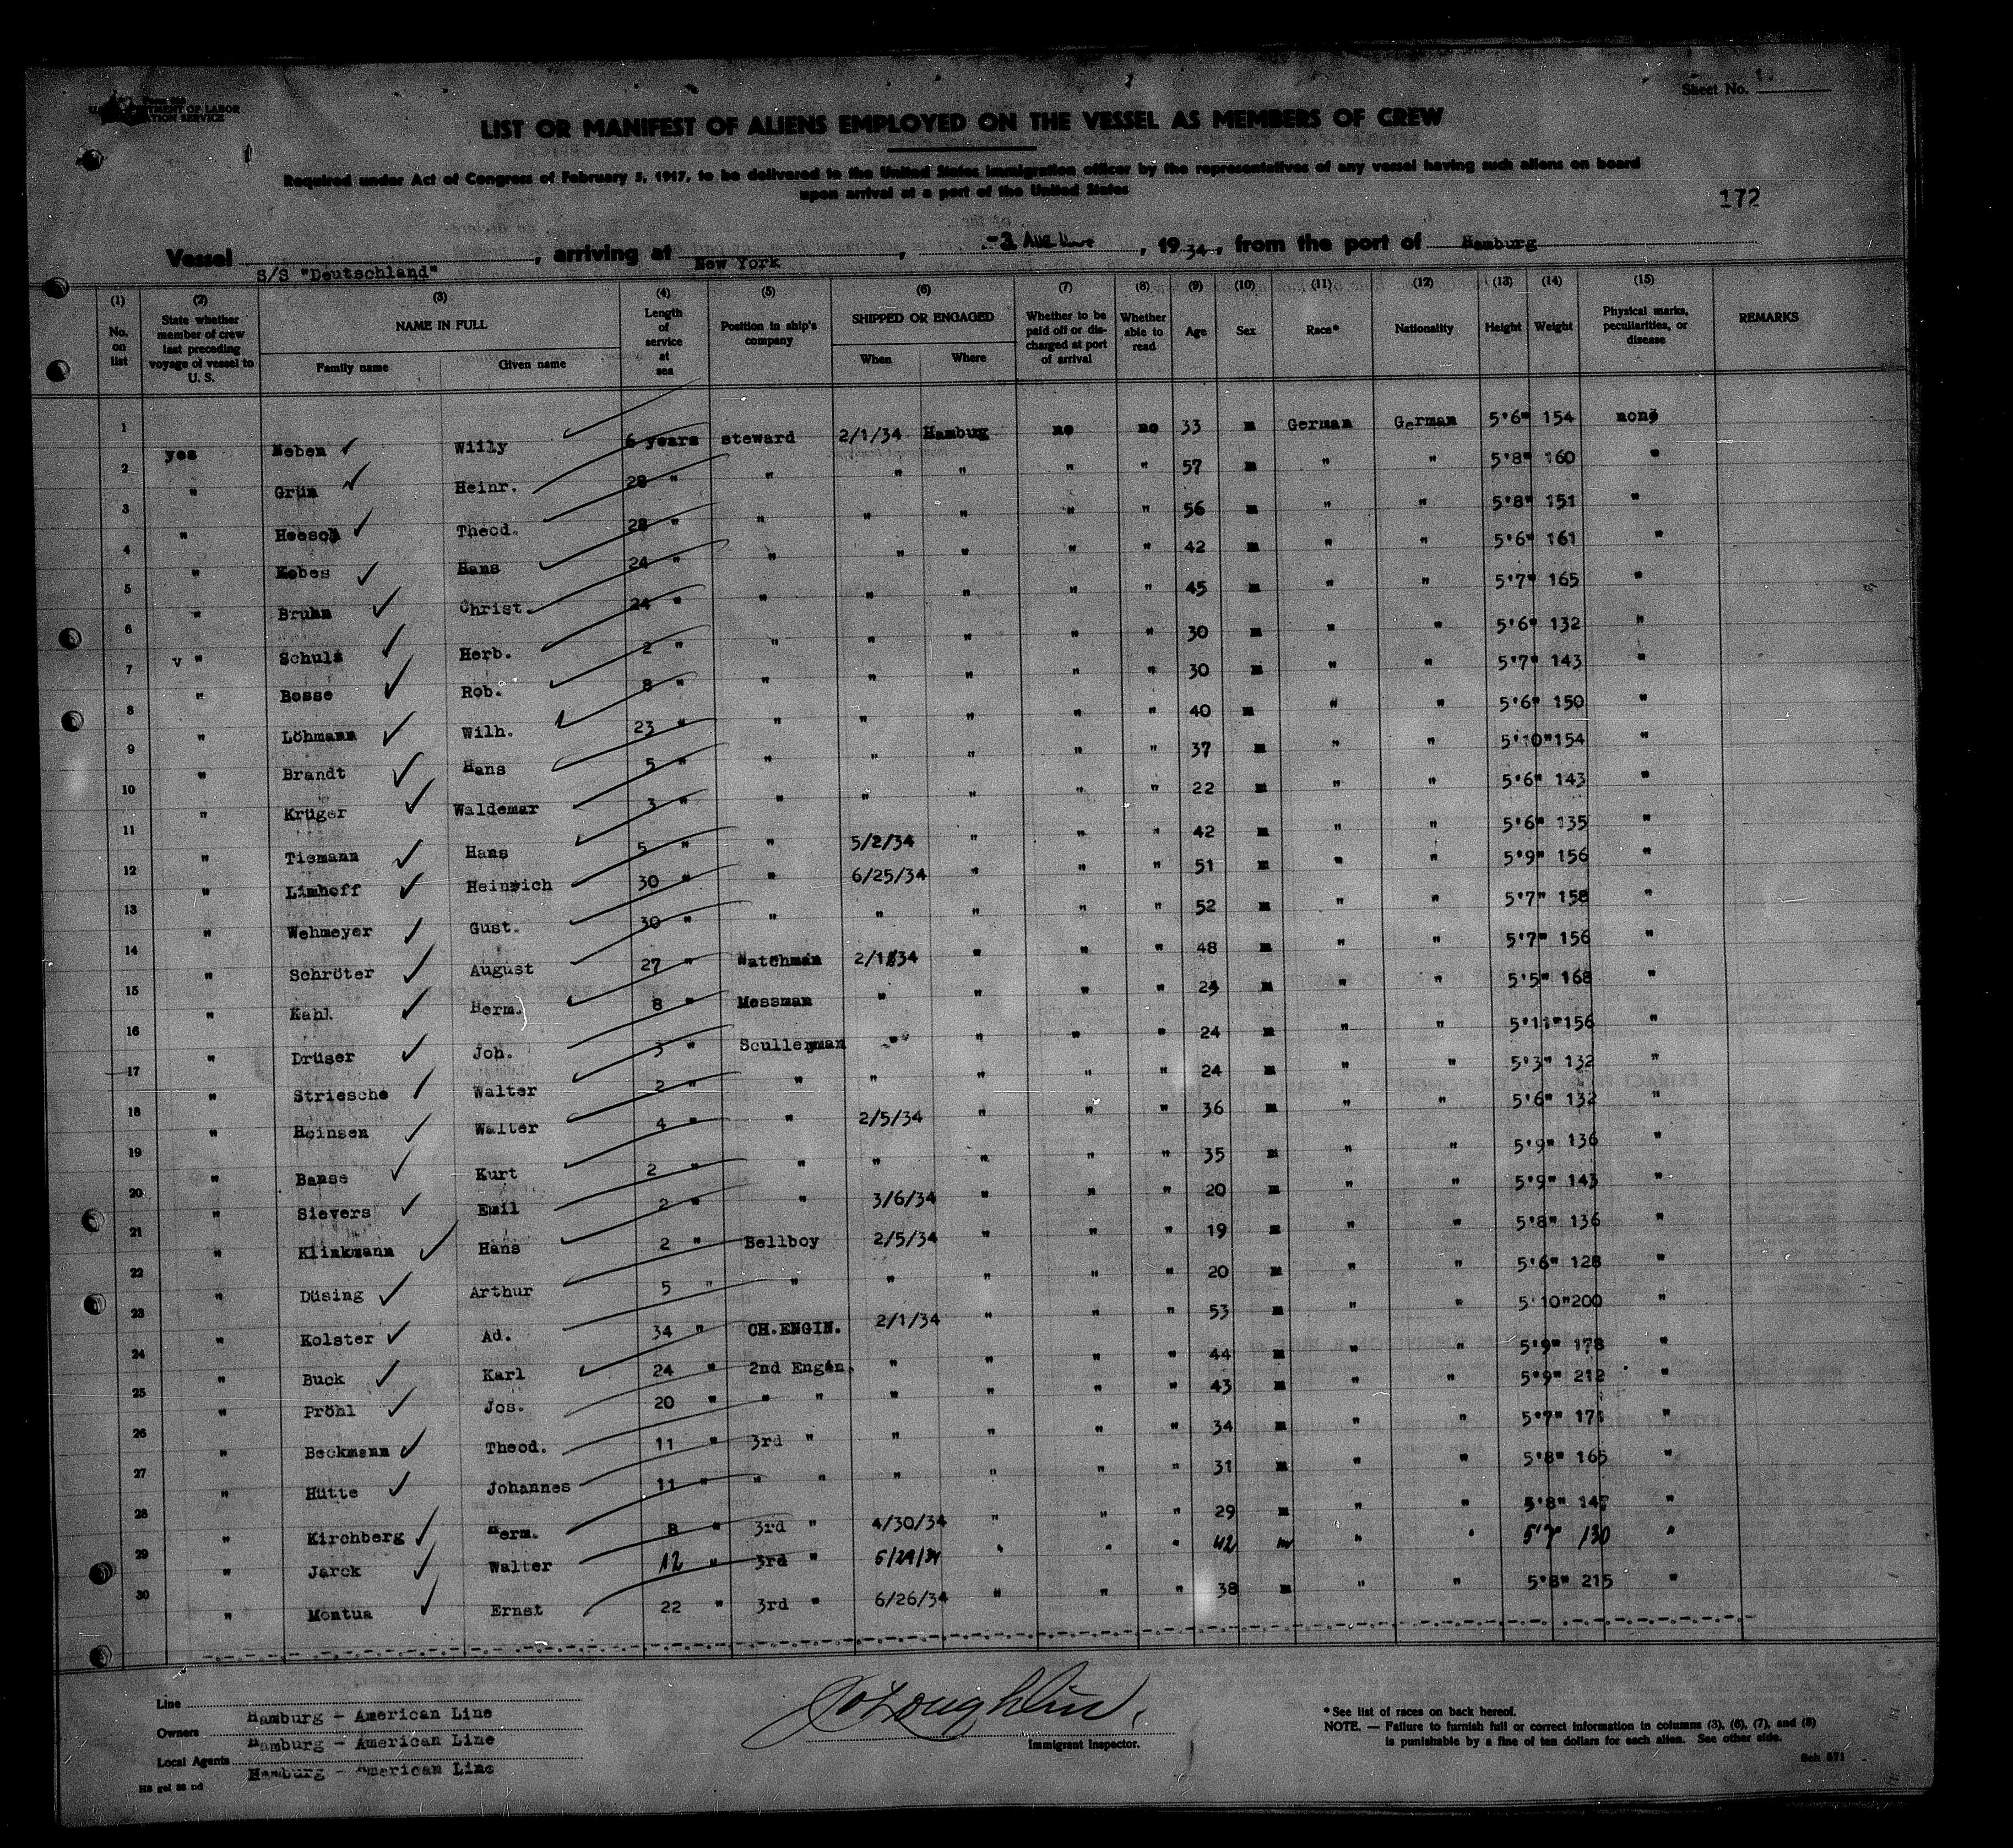 Sheet No.
DEPARTMENT OF LABOR
LIST OR MANIFEST OF ALIENS EMPLOYED ON THE VESSEL AS MEMBERS OF CREW
Required under Act of Congress of February 5, 1917, to be delivered to the United States immigration officer by the representatives of any vessel having such aliens on board
upon arrival at a port of the United States
172
Vessel S/S "Deutschland", arriving at New York, -3 , 1934, from the port of Hamburg
(1) (2) (3) (4) (5) (6) (7) (8) (9) (10) (11) (12) (13) (14) (15)
No. on list State whether member of crew last preceding voyage of vessel to U. S. NAME IN FULL Family name Given name Length of service at sea Position in ship's company SHIPPED OR ENGAGED When Where Whether to be paid off or discharged at port of arrival Whether able to read Age Sex Race* Nationality Height Weight Physical marks, peculiarities, or disease REMARKS
1 yes Neben Willy 6 years steward 2/1/34 Hambug no no 33 m German German 5'6" 154 none
2 " Grün Heinr. 28 " " " " " " 57 m " " 5'8" 160 "
3 " Heesch Theod. 28 " " " " " " 56 m " " 5'8" 151 "
4 " Kobes Hans 24 " " " " " " 42 m " " 5'6" 161 "
5 " Bruhn Christ. 24 " " " " " " 45 m " " 5'7" 165 "
6 v " Schulz Herb. 2 " " " " " " 30 m " " 5'6" 132 "
7 " Bosse Rob. 8 " " " " " " 30 m " " 5'7" 143 "
8 " Löhmann Wilh. 23 " " " " " " 40 m " " 5'6" 150 "
9 " Brandt Hans 5 " " " " " " 37 m " " 5'10" 154 "
10 " Krüger Waldemar 3 " " " " " " 22 m " " 5'6" 143 "
11 " Tiemann Hans 5 " " 5/2/34 " " " 42 m " " 5'6" 135 "
12 " Limhoff Heinrich 30 " " 6/25/34 " " " 51 m " " 5'9" 156 "
13 " Wehmeyer Gust. 30 " " " " " " 52 m " " 5'7" 158 "
14 " Schröter August 27 " Watchman 2/1/34 " " " 48 m " " 5'7" 156 "
15 " Kahl Herm. 8 " Messman " " " " m " " 5'5" 168 "
16 " Drüser Joh. 3 " Sculleyman " " " " 24 m " " 5'11" 156 "
17 " Striesche Walter 2 " " " " " " 24 m " " 5'3" 132 "
18 " Heinsen Walter 4 " " 2/5/34 " " " 36 m " " 5'6" 132 "
19 " Banse Kurt 2 " " " " " " 35 m " " 5'9" 136 "
20 " Sievers Emil 2 " " 3/6/34 " " " 20 m " " 5'9" 143 "
21 " Klinkmann Hans 2 " Bellboy 2/5/34 " " " 19 m " " 5'8" 136 "
22 " Düsing Arthur 5 " " " " " " 20 m " " 5'6" 128 "
23 " Kolster Ad. 34 " CH.ENGIN. 2/1/34 " " " 53 m " " 5'10" 200 "
24 " Buck Karl 24 " 2nd Engin. " " " " 44 m " " 5'9" 178 "
25 " Pröhl Jos. 20 " " " " " " " 43 m " " 5'9" 212 "
26 " Beckmann Theod. 11 " 3rd " " " " " 34 m " " 5'7" 171 "
27 " Hütte Johannes 11 " " " " " " " 31 m " " 5'8" 165 "
28 " Kirchberg Herm. 8 " 3rd " 4/30/34 " " " 29 m " " 5'8" 147 "
29 " Jarck Walter 12 " 3rd " 6/29/34 " " " 42 m " " 5'7 130 "
30 " Montua Ernst 22 " 3rd " 6/26/34 " " " 38 m " " 5'8" 215 "
Line Hamburg - American Line
Owners Hamburg - American Line
Local Agents Hamburg - American Line
Immigrant Inspector.
* See list of races on back hereof.
NOTE. — Failure to furnish full or correct information in columns (3), (6), (7), and (8)
is punishable by a fine of ten dollars for each alien. See other side.
Sch 571